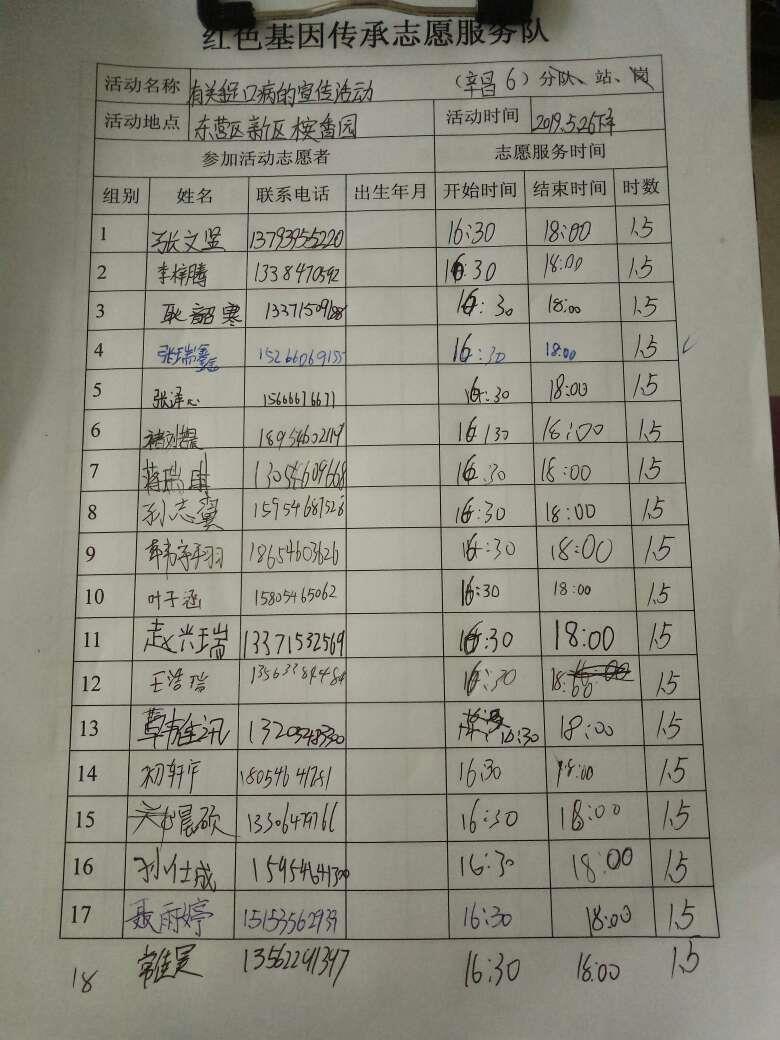 红色基因传承志愿服务队
活动名称 有关 口病的宣传活动 (辛昌6)分队、站、岗
活动地点 东营区新区槟香园 活动时间 2019.5.26下午
参加活动志愿者 志愿服务时间
组别 姓名 联系电话 出生年月 开始时间 结束时间 时数
1 张文坚 13793955220 16:30 18:00 1.5
2 李梓腾 1338470592 16:30 18:00 1.5
3 耿韶寒 16:30 18:00 1.5
4 张瑞鑫 16:30 18:00 1.5
5 张泽心 15666676671 16:30 18:00 1.5
6 16:30 18:00 1.5
7 蒋瑞康 13054609668 16:30 18:00 1.5
8 孙志翼 15954687528 16:30 18:00 1.5
9 18654603626 16:30 18:00 1.5
10 叶子涵 15805465062 16:30 18:00 1.5
11 赵兴瑞 13371532569 16:30 18:00 1.5
12 王浩瑞 18:00 1.5
13 16:30 18:00 1.5
14 初轩宇 16:30 18:00 1.5
15 16:30 18:00 1.5
16 孙仕成 15954641300 16:30 18:00 1.5
17 聂雨婷 15153562939 16:30 18:00 1.5
18 常佳昊 13562291347 16:30 18:00 1.5